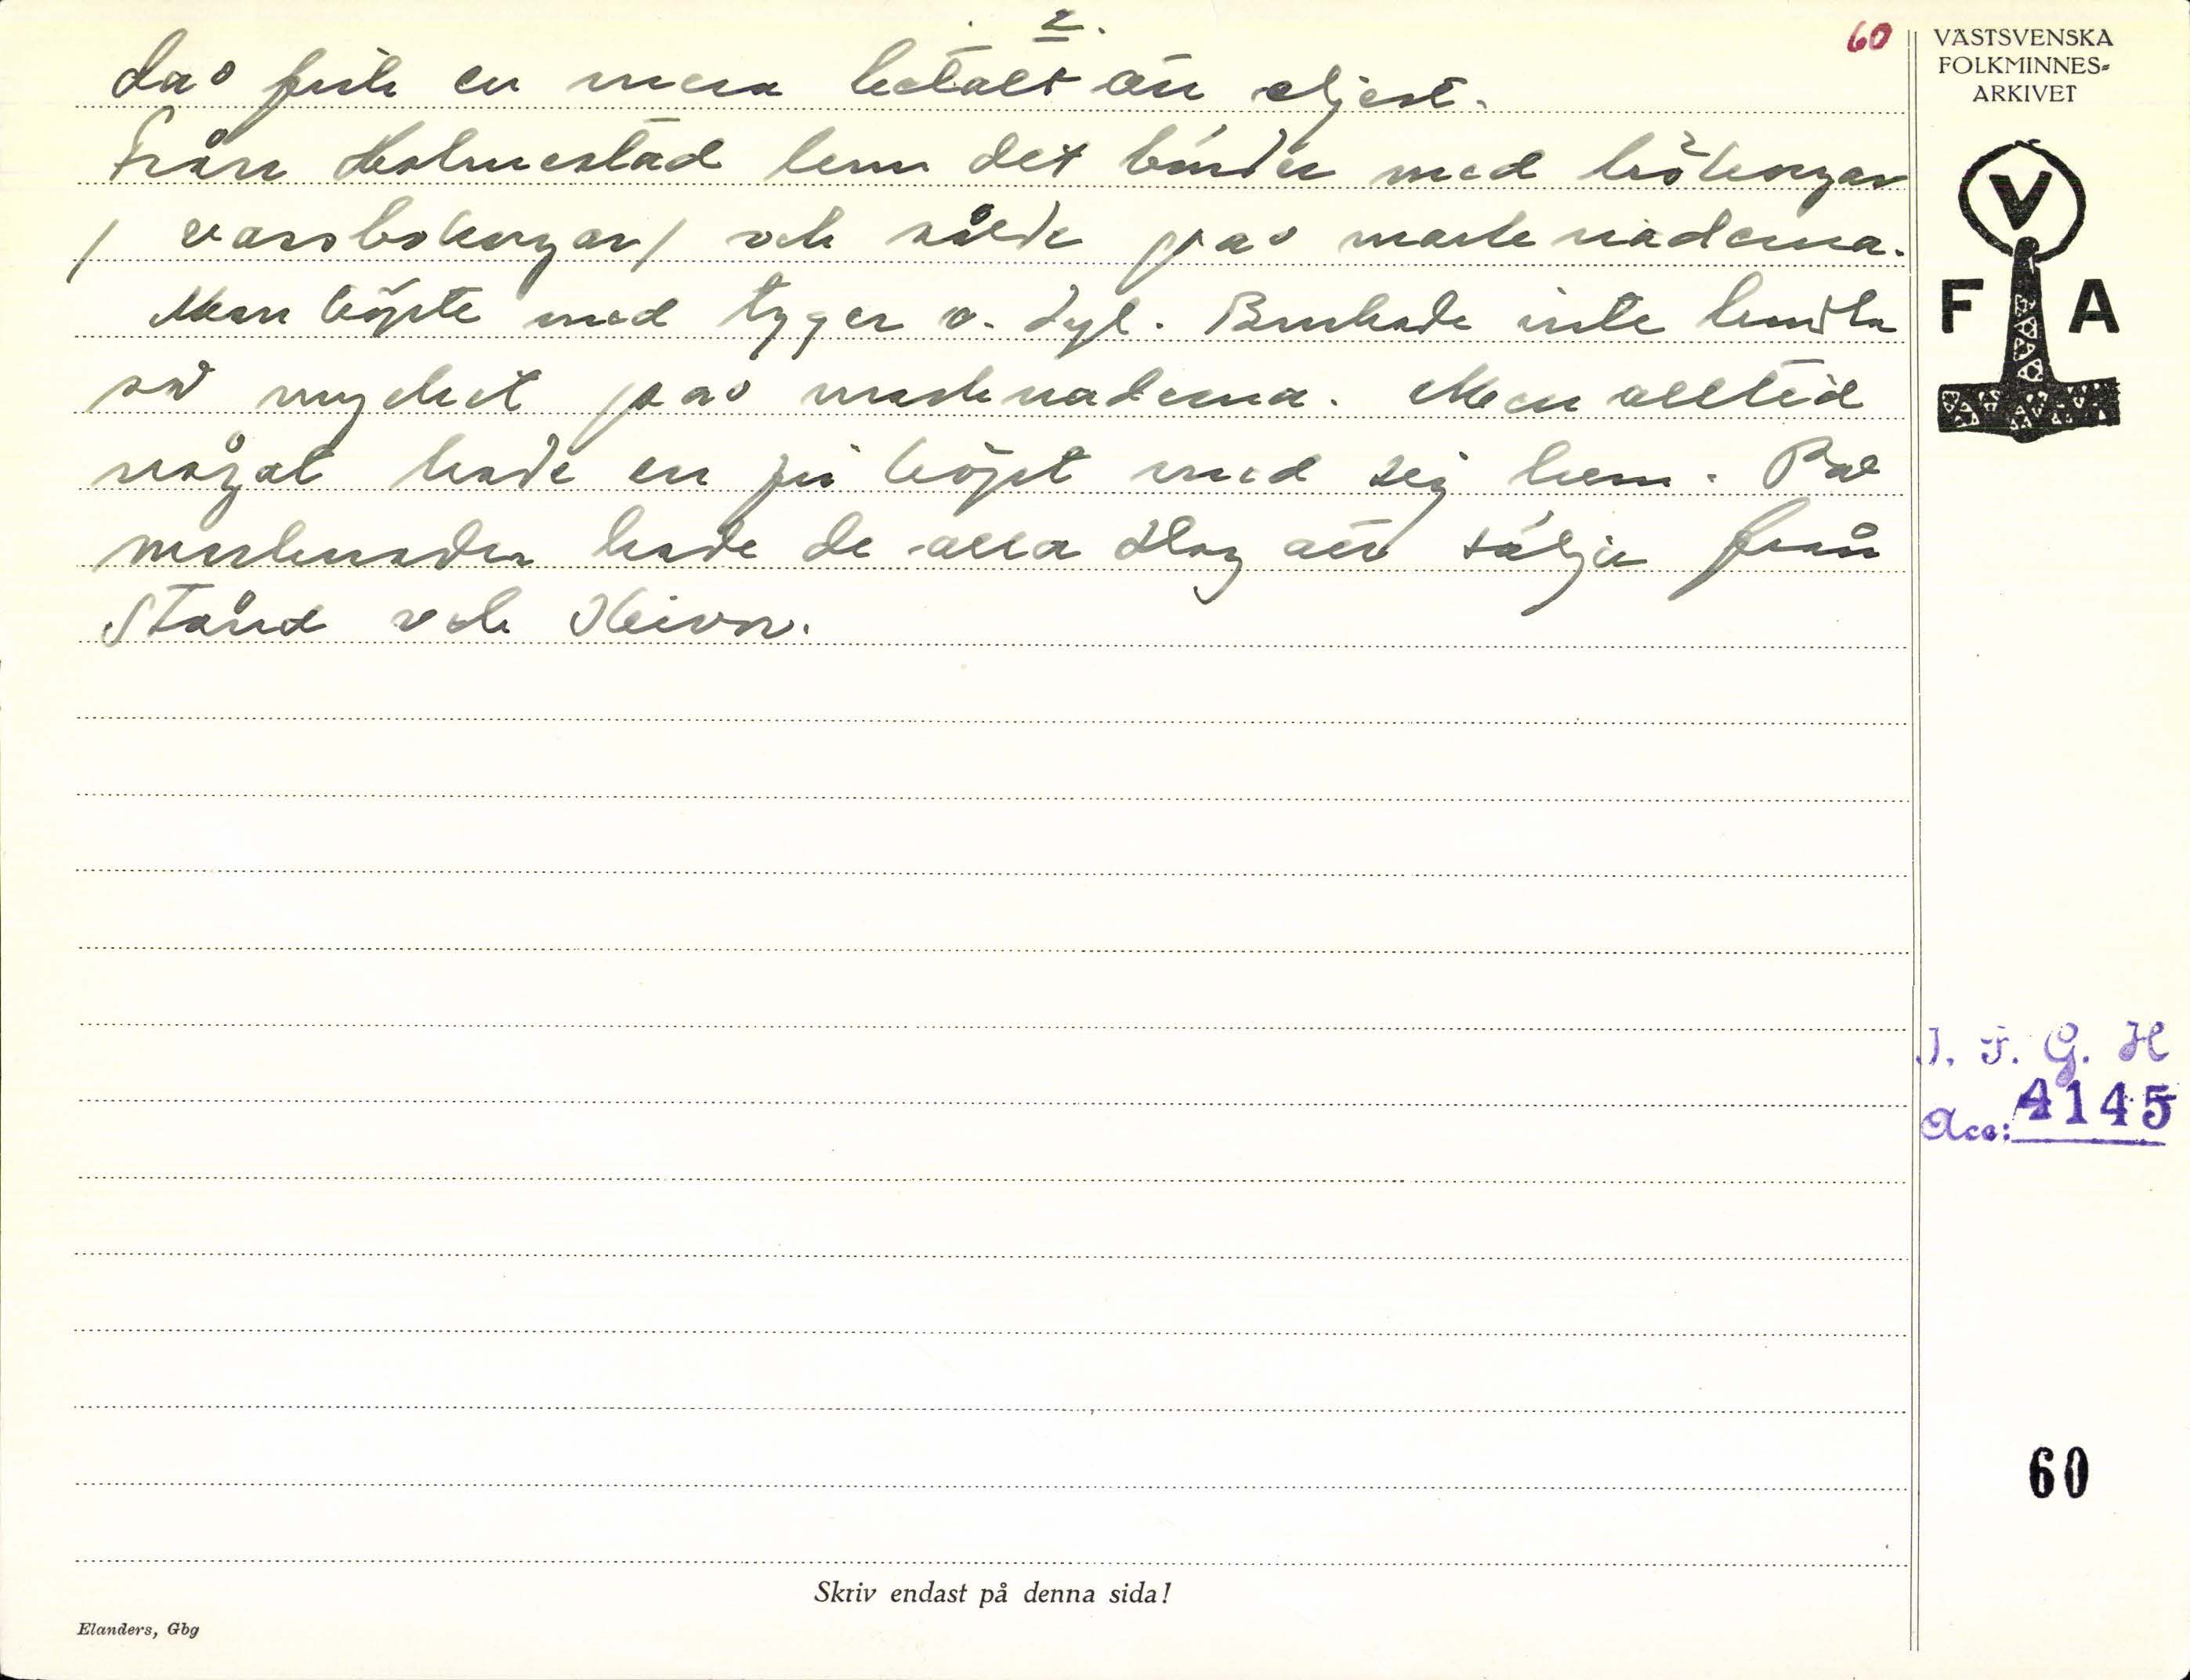 2.
60
då fick en mera betalt än eljest.
Från Holmestad kom det bönder med bökungar
/ varsbokungar/ och sålde på marknaderna.
Man köpte med tyger o. dyl. Brukade inte handla
så mycket på marknaderna. Men alltid
något hade en ju köpt med sig hem. På
marknaden hade de alla slag att sälja från
Stånd och Skivor.
VÄSTSVENSKA
FOLKMINNES-
ARKIVET
V
F A
I. F. G. H
Acc: 4145
60
Skriv endast på denna sida!
Elanders, Gbg